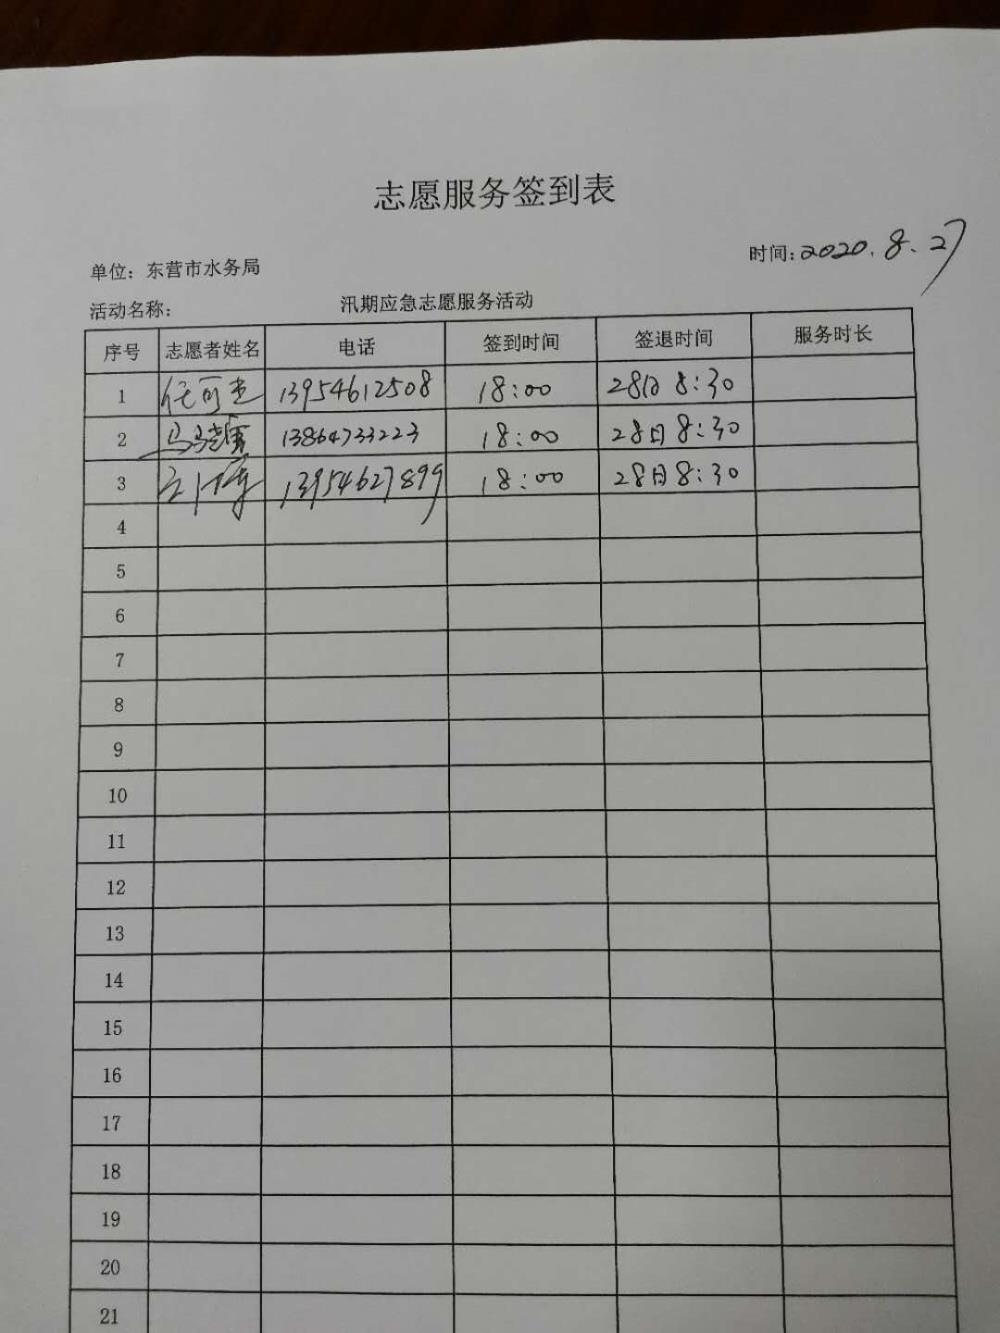 志愿服务签到表
单位：东营市水务局 时间：2020.8.27
活动名称： 汛期应急志愿服务活动
序号 志愿者姓名 电话 签到时间 签退时间 服务时长
1 任可 13954612508 18:00 28日 8:30
2 马 13864733223 18:00 28日 8:30
3 13954627899 18:00 28日 8:30
4
5
6
7
8
9
10
11
12
13
14
15
16
17
18
19
20
21